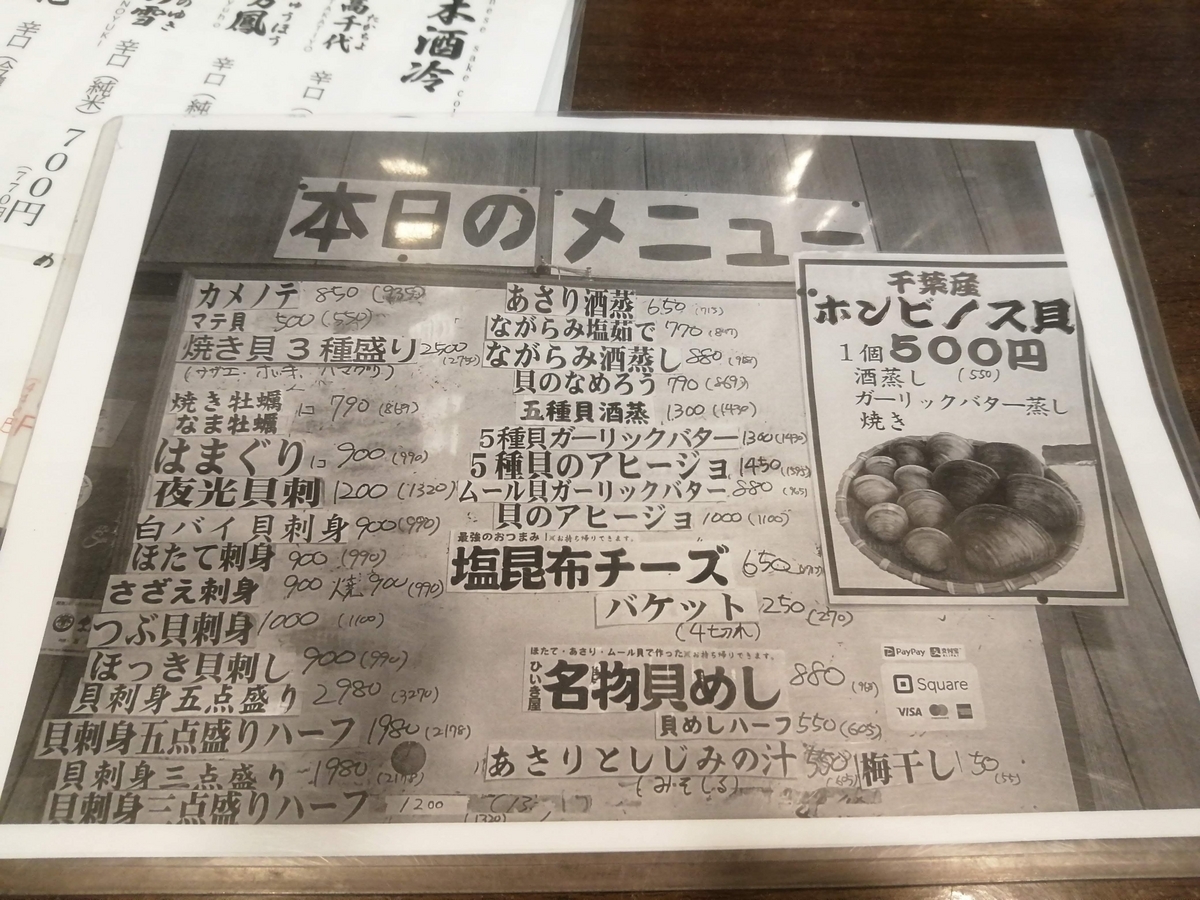 木酒冷
萬千代
たかちよ
辛口
万鳳
辛口(純
の雪
のゆき
辛口(純米)
700円
(770円)
め
本日のメニュー
カメノテ 850 (935)
マテ貝 500 (550)
焼き貝3種盛り 2500
(サザエ・ホッキ・ハマグリ)
焼き牡蠣
なま牡蠣
1コ 790 (869)
はまぐり 1コ 900 (990)
夜光貝刺 1200 (1320)
白バイ貝刺身 900 (990)
ほたて刺身 900 (990)
さざえ刺身 900 焼 900 (990)
つぶ貝刺身 1000 (1100)
ほっき貝刺し 900 (990)
貝刺身五点盛り 2980
貝刺身五点盛りハーフ 1980 (2178)
貝刺身三点盛り 1980 (2178)
貝刺身三点盛りハーフ 1200
(1320)
あさり酒蒸 650 (715)
ながらみ塩茹で 770 (847)
ながらみ酒蒸し 880 (968)
貝のなめろう 790 (869)
五種貝酒蒸 1300 (1430)
5種貝ガーリックバター 1300 (1430)
5種貝のアヒージョ 1450 (1595)
ムール貝ガーリックバター 880 (968)
貝のアヒージョ 1000 (1100)
最強のおつまみ!※お持ち帰りできます。
塩昆布チーズ 650 (715)
バケット 250 (270)
(4切れ)
ほたて・あさり・ムール貝で作った※お持ち帰りできます。
ひいき屋
名物貝めし 880 (968)
貝めしハーフ 550 (605)
あさりとしじみの汁 550 (605)
(みそしる)
梅干し 50 (55)
千葉産
ホンビノス貝
1個500円
(550)
酒蒸し
ガーリックバター蒸し
焼き
PayPay
Square
VISA